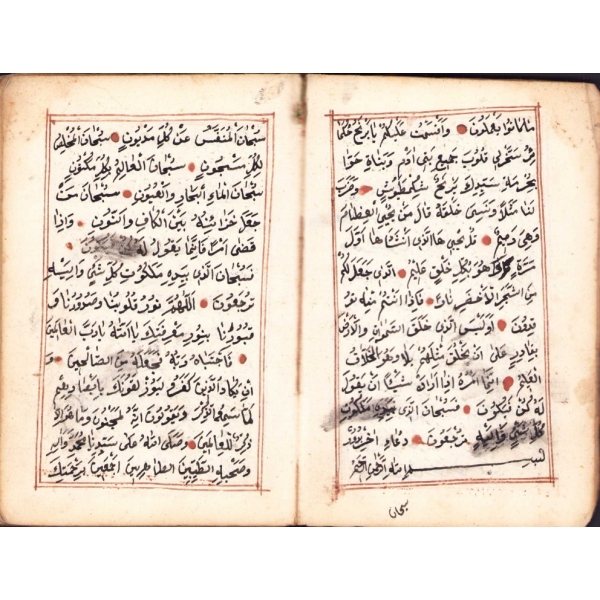 ما كانوا يعملون واقسمت عليكم يا برتخ
من سخر لي قلوب جميع بني آدم وبنات حوا
بحرمة سيدك برتخ وضرب
لنا مثلا ونسي خلقه قال من يحيي العظام
وهي رميم قل يحييها الذي انشأها اول
مرة وهو بكل خلق عليم الذي جعل لكم
من الشجر الأخضر نارا فإذا انتم منه تو
قدون اوليس الذي خلق السموات والأرض
بقادر على ان يخلق مثلهم بلا وهو الخلاق
العليم انما امره إذا أراد شيئا ان يقول
له كن فيكون فسبحان الذي بيده ملكوت
كل شئ واليه ترجعون دعاء اخر
بسم الله الرحمن الرحيم
سبحان
سبحان المنفس عن كل مديون سبحان المخلص
لكل مسجون سبحان العالم بكل مكنون
سبحان الماء أبحار والعيون سبحان من
جعل خزائنه بين الكاف والنون وإذا
قضى امرا فإنما يقول له كن فيكون
فسبحان الذي بيده ملكوت كل شئ واليه
ترجعون اللهم نور قلوبنا وصدورنا و
قبورنا بنور معرفتك يا الله يا رب العالمين
فاجتباه ربه فجعله من الصالحين و
ان يكاد الذين كفروا ليزلقونك بابصارهم
لما سمعوا الذكر ويقولون انه لمجنون وما هو الا
ذكر للعالمين وصلى الله على سيدنا محمد وآله
وصحبه الطيبين الطاهرين اجمعين برحمتك